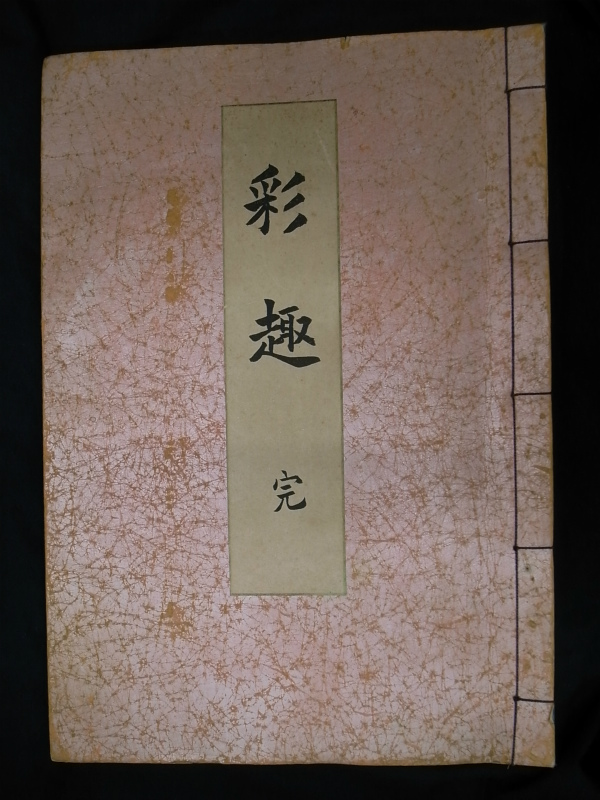 彩趣 完